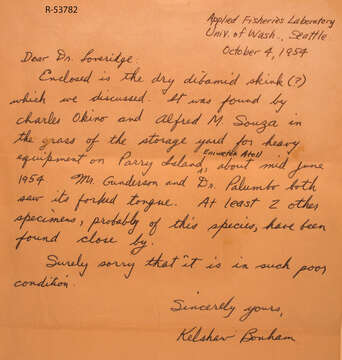 R-53782
Applied Fisheries Laboratory
Univ. of Wash., Seattle
October 4, 1954
Dear Dr. Loveridge:
Enclosed is the dry dibamid skink (?)
which we discussed. It was found by
Charles Okino and Alfred M. Souza in
the grass of the storage yard for heavy
Eniwetok Atoll
equipment on Parry Island, about mid june
1954 Mr. Gunderson and Dr. Palumbo both
saw its forked tongue. At least 2 other
specimens, probably of this species, have been
found close by.
Surely sorry that it is in such poor
condition.
Sincerely yours,
Kelshaw Bonham